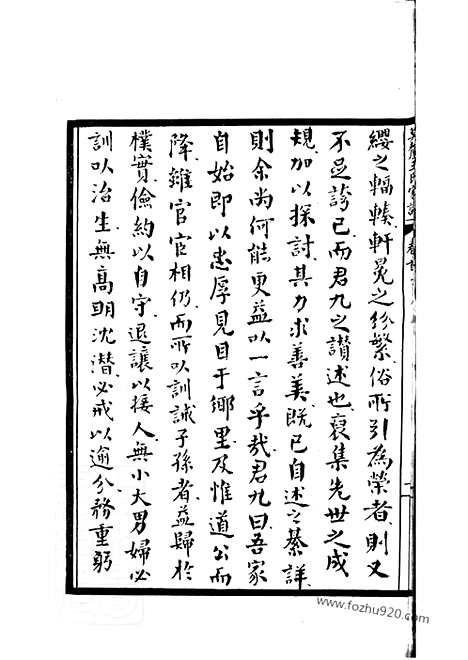 纓之輻輳軒冕之紛繁俗所引為榮者則又
不足誇已而君九之讃述也裒集先世之成
規加以探討其力求善美既已自述之綦詳
則余尚何能更益以一言乎哉君九曰吾家
自始即以忠厚見目于鄉里及惟道公而
降雖官宦相仍而所以訓誡子孫者益歸於
樸實儉約以自守退讓以接人無小大男婦必
訓以治生無高明沈潛必戒以逾分務重躬
www.fozhu920.com